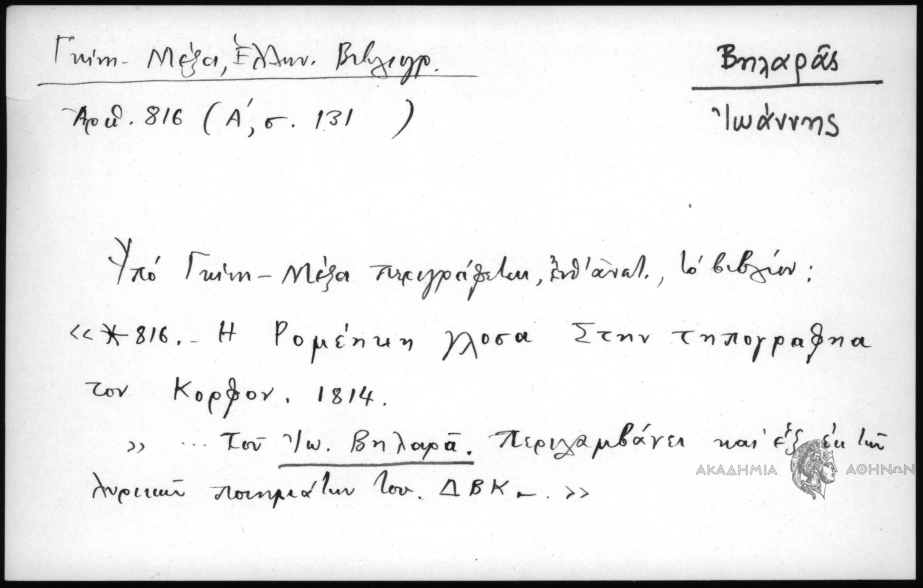 Γκίνη - Μέξα, Ἑλλην. Βιβλιογρ.
Βηλαρᾶς
Ἀριθ. 816 (Α΄, σ. 131 )
Ἰωάννης
Ὑπό Γκίνη - Μέξα περιγράφεται, ἐνθ' ἀνωτ., τό βιβλίον:
«*816. - Η Ρομέηκη γλοσα Στην τηπογραφηα
του Κορφου. 1814.
» ... Τοῦ Ἰω. Βηλαρᾶ. Περιλαμβάνει καί ἕξ ἐκ τῶν
ΑΚΑΔΗΜΙΑ ΑΘΗΝΩΝ
λυρικῶν ποιημάτων του. ΔΒΚ. »